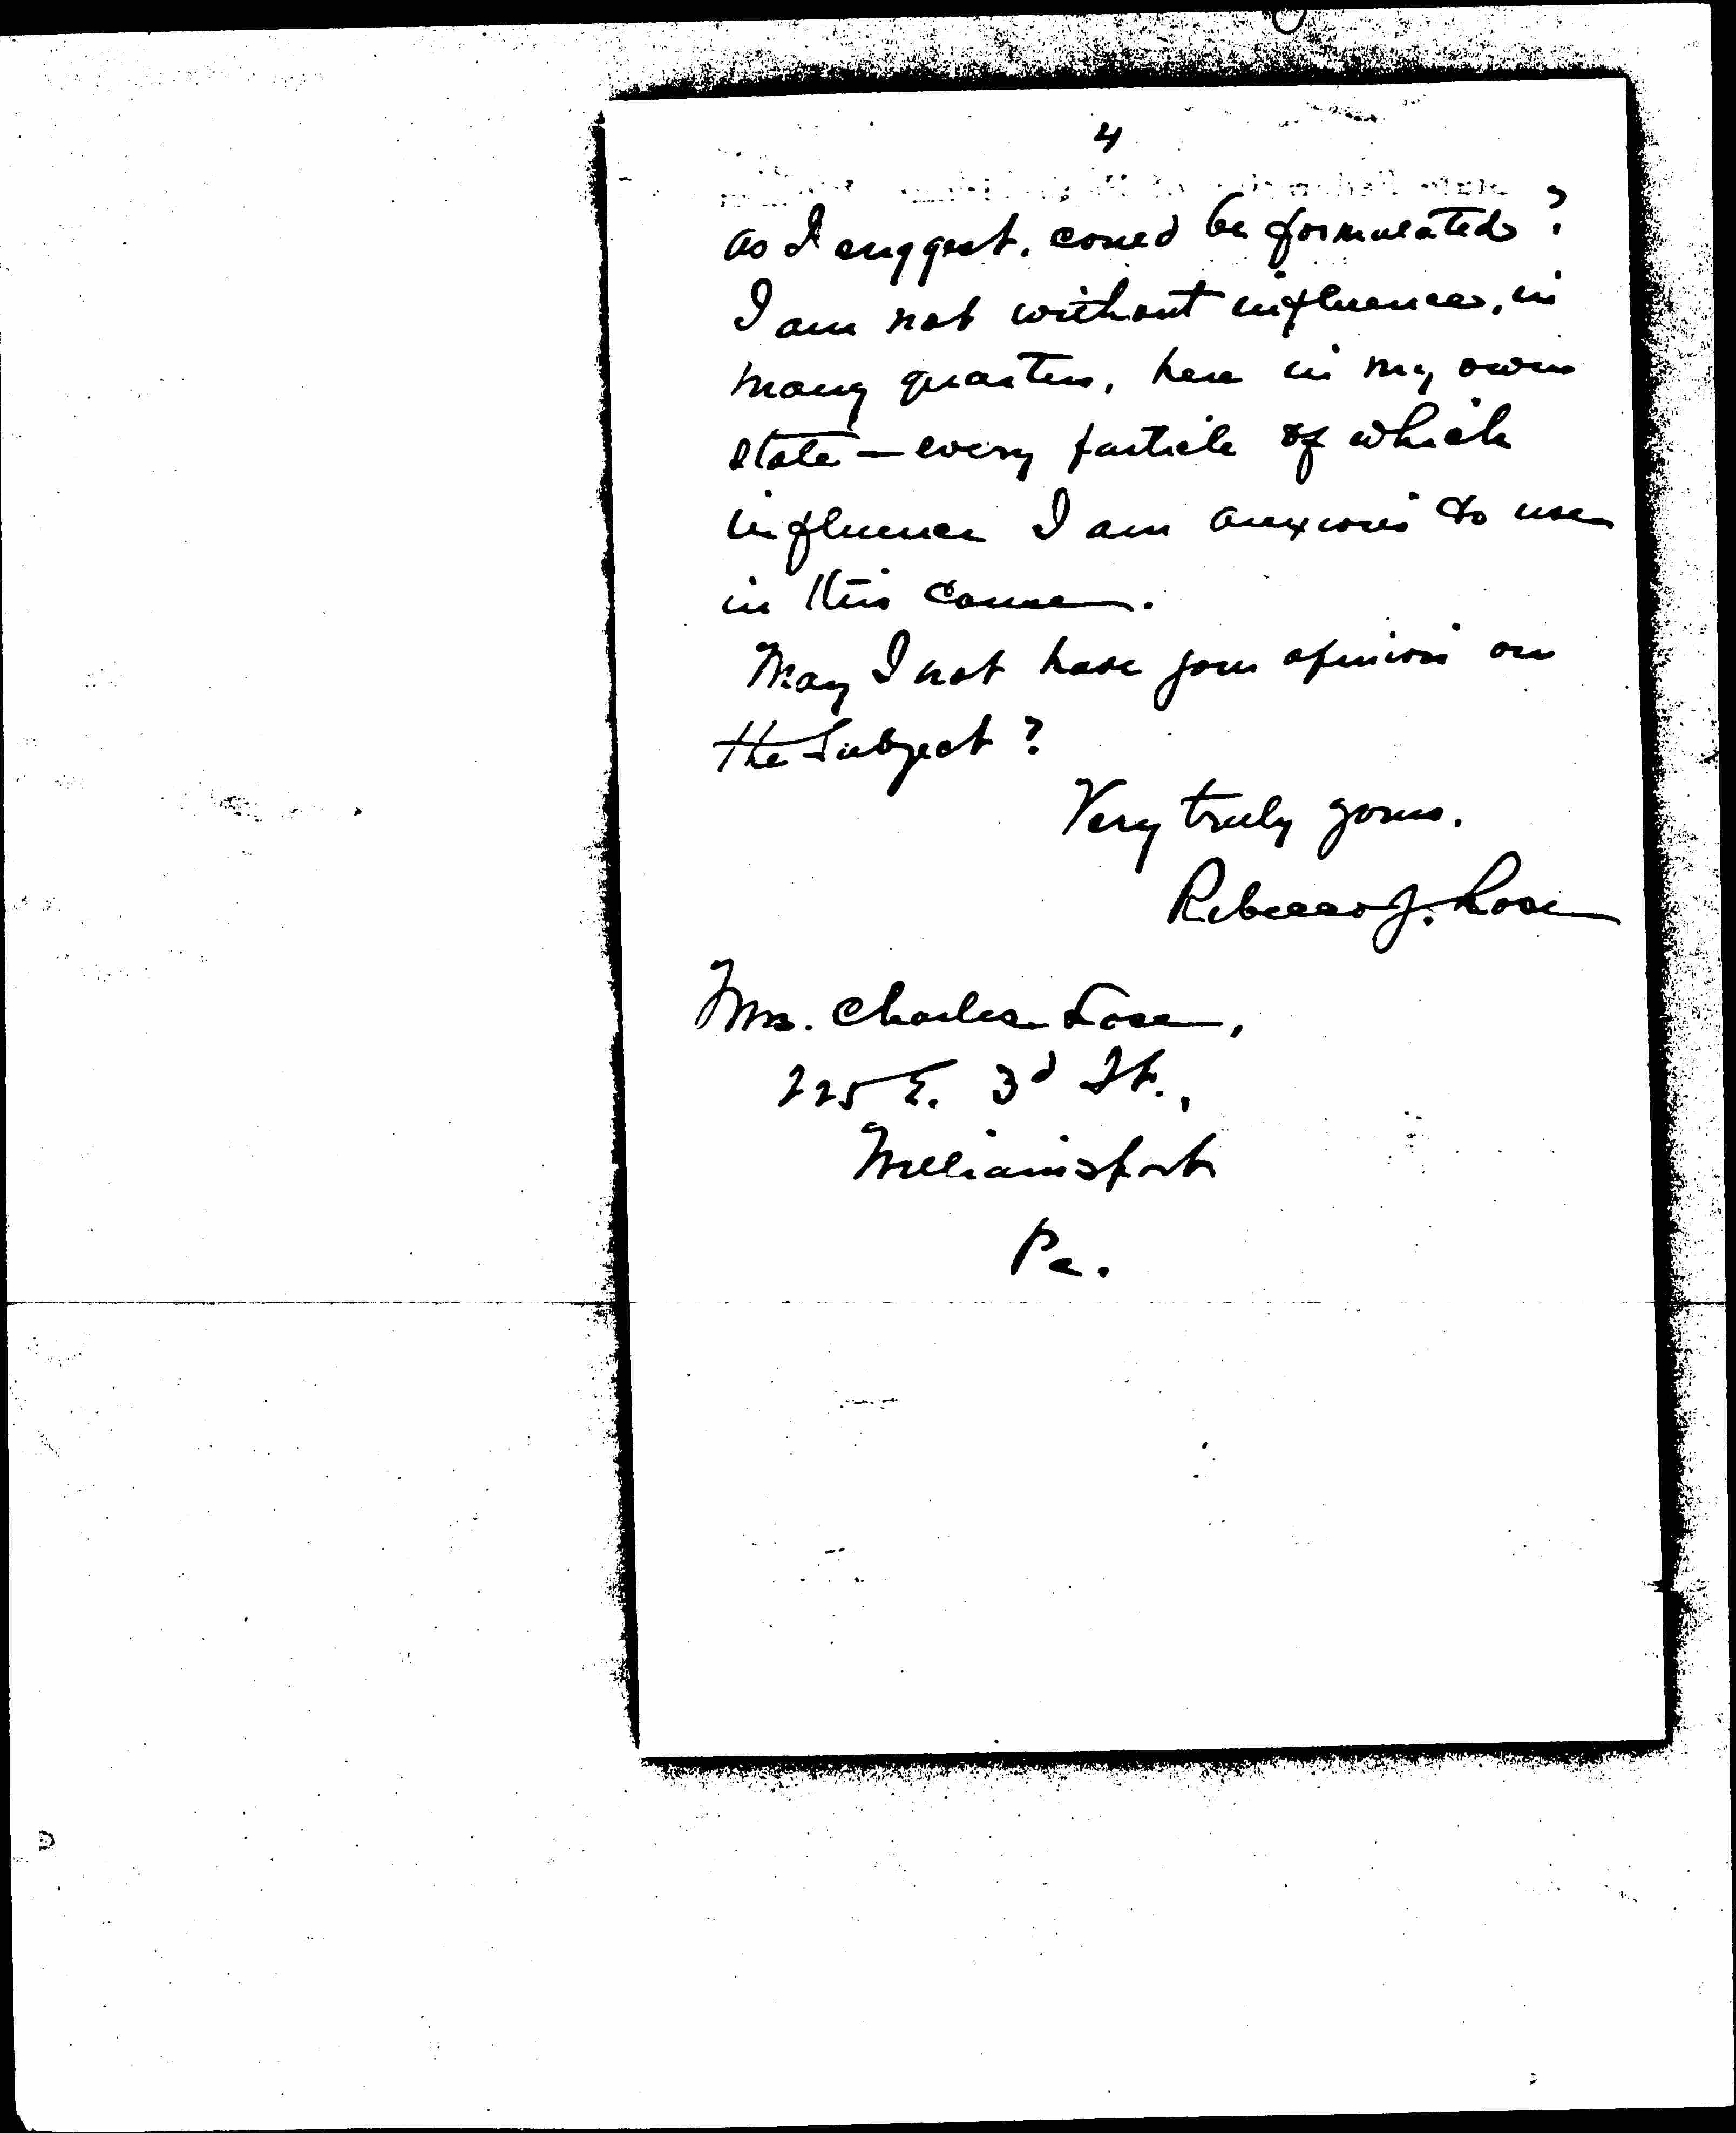 4
as I suggest, could be formulated?
I am not without influence, in
many quarters, here in my own
state — every particle of which
influence I am anxious to use
in this cause.
May I not have your opinion on
the subject?
Very truly yours.
Rebecca J. Lose
Mrs. Charles Lose,
225 E. 3d St.,
Williamsport
Pa.